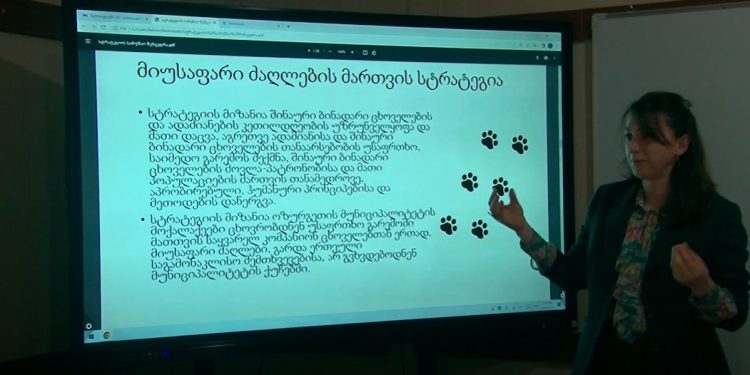 სტრატეგიის სამუშაო შეხვედრა.pdf
მიუსაფარი ძაღლების მართვის სტრატეგია
• სტრატეგიის მიზანია შინაური ბინადარი ცხოველების
და ადამიანების კეთილდღეობის უზრუნველყოფა და
მათი დაცვა, აგრეთვე ადამიანისა და შინაური
ბინადარი ცხოველების თანაარსებობის უსაფრთხო,
საიმედო გარემოს შექმნა, შინაური ბინადარი
ცხოველების მოვლა-პატრონობისა და მათი
პოპულაციების მართვის თანამედროვე,
აპრობირებული, ჰუმანური პრინციპებისა და
მეთოდების დანერგვა.
• სტრატეგიის მიზანია ოზურგეთის მუნიციპალიტეტის
მოქალაქეები ცხოვრობდნენ უსაფრთხო გარემოში
მათთვის საყვარელ კომპანიონ ცხოველებთან ერთად,
მიუსაფარი ძაღლები, გარდა ერთეული
საგამონაკლისო შემთხვევებისა, არ გვხვდებოდნენ
მუნიციპალიტეტის ქუჩებში.